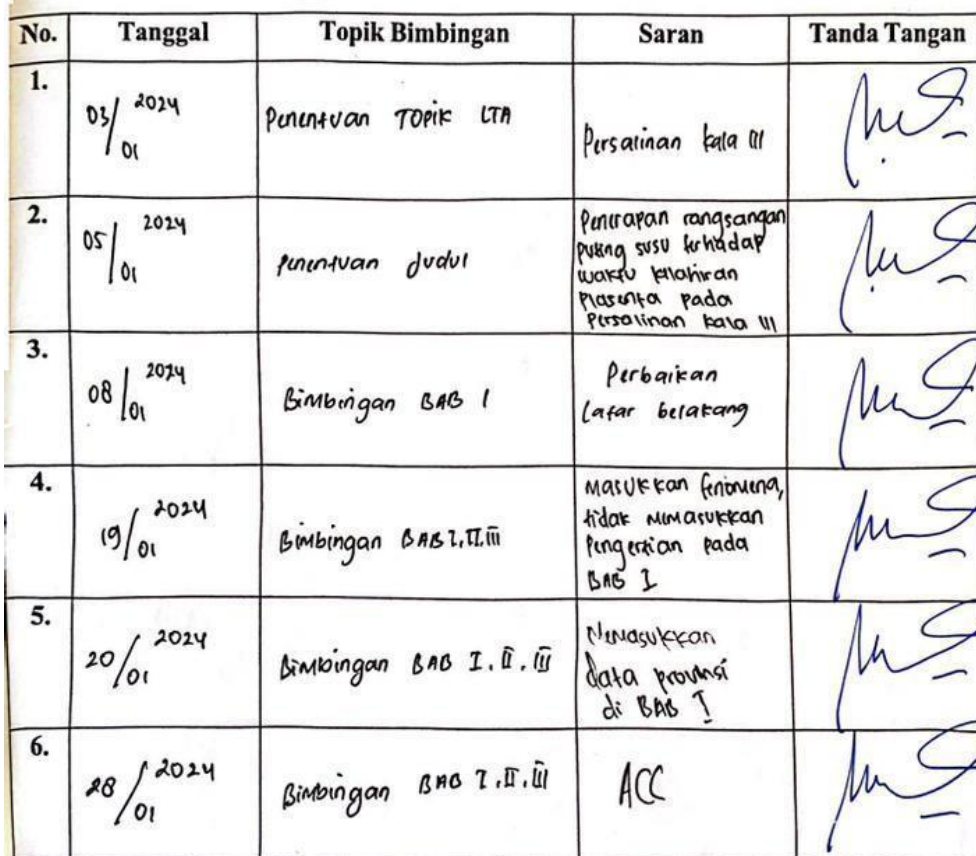 No. Tanggal Topik Bimbingan Saran Tanda Tangan
1.
03/01 2024
Penentuan TOPIK LTA
Persalinan kala III
2.
05/01 2024
Penentuan Judul
Penerapan rangsangan
puting susu terhadap
waktu kelahiran
Plasenta pada
Persalinan kala III
3.
08/01 2024
Bimbingan BAB I
Perbaikan
latar belakang
4.
19/01 2024
Bimbingan BAB I, II, III
Masukkan fenomena,
tidak memasukkan
Pengertian pada
BAB I
5.
20/01 2024
Bimbingan BAB I, II, III
Memasukkan
data provinsi
di BAB I
6.
28/01 2024
Bimbingan BAB I, II, III
ACC